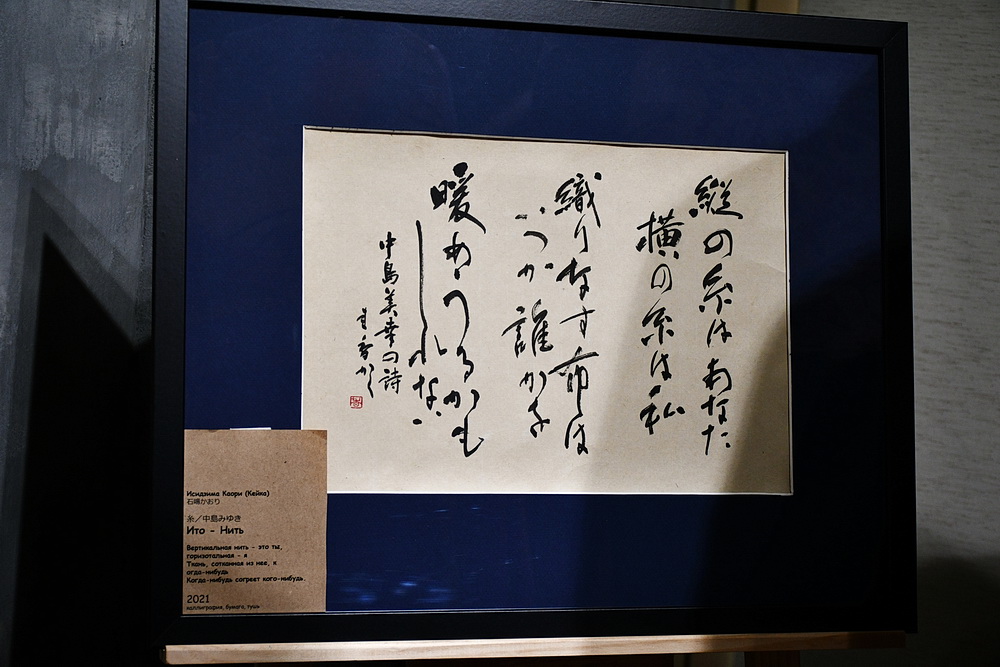 縦の糸はあなた
横の糸は私
織りなす布は
いつか誰かを
暖めうるかも
しれない
中島美幸の詩
Исидзима Каори (Кейка)
石嶋かおり
糸／中島みゆき
Ито - Нить
Вертикальная нить - это ты,
горизотальная - я
Ткань, сотканная из нее, к
огда-нибудь
Когда-нибудь согреет кого-нибудь.
2021
каллиграфия, бумага, тушь